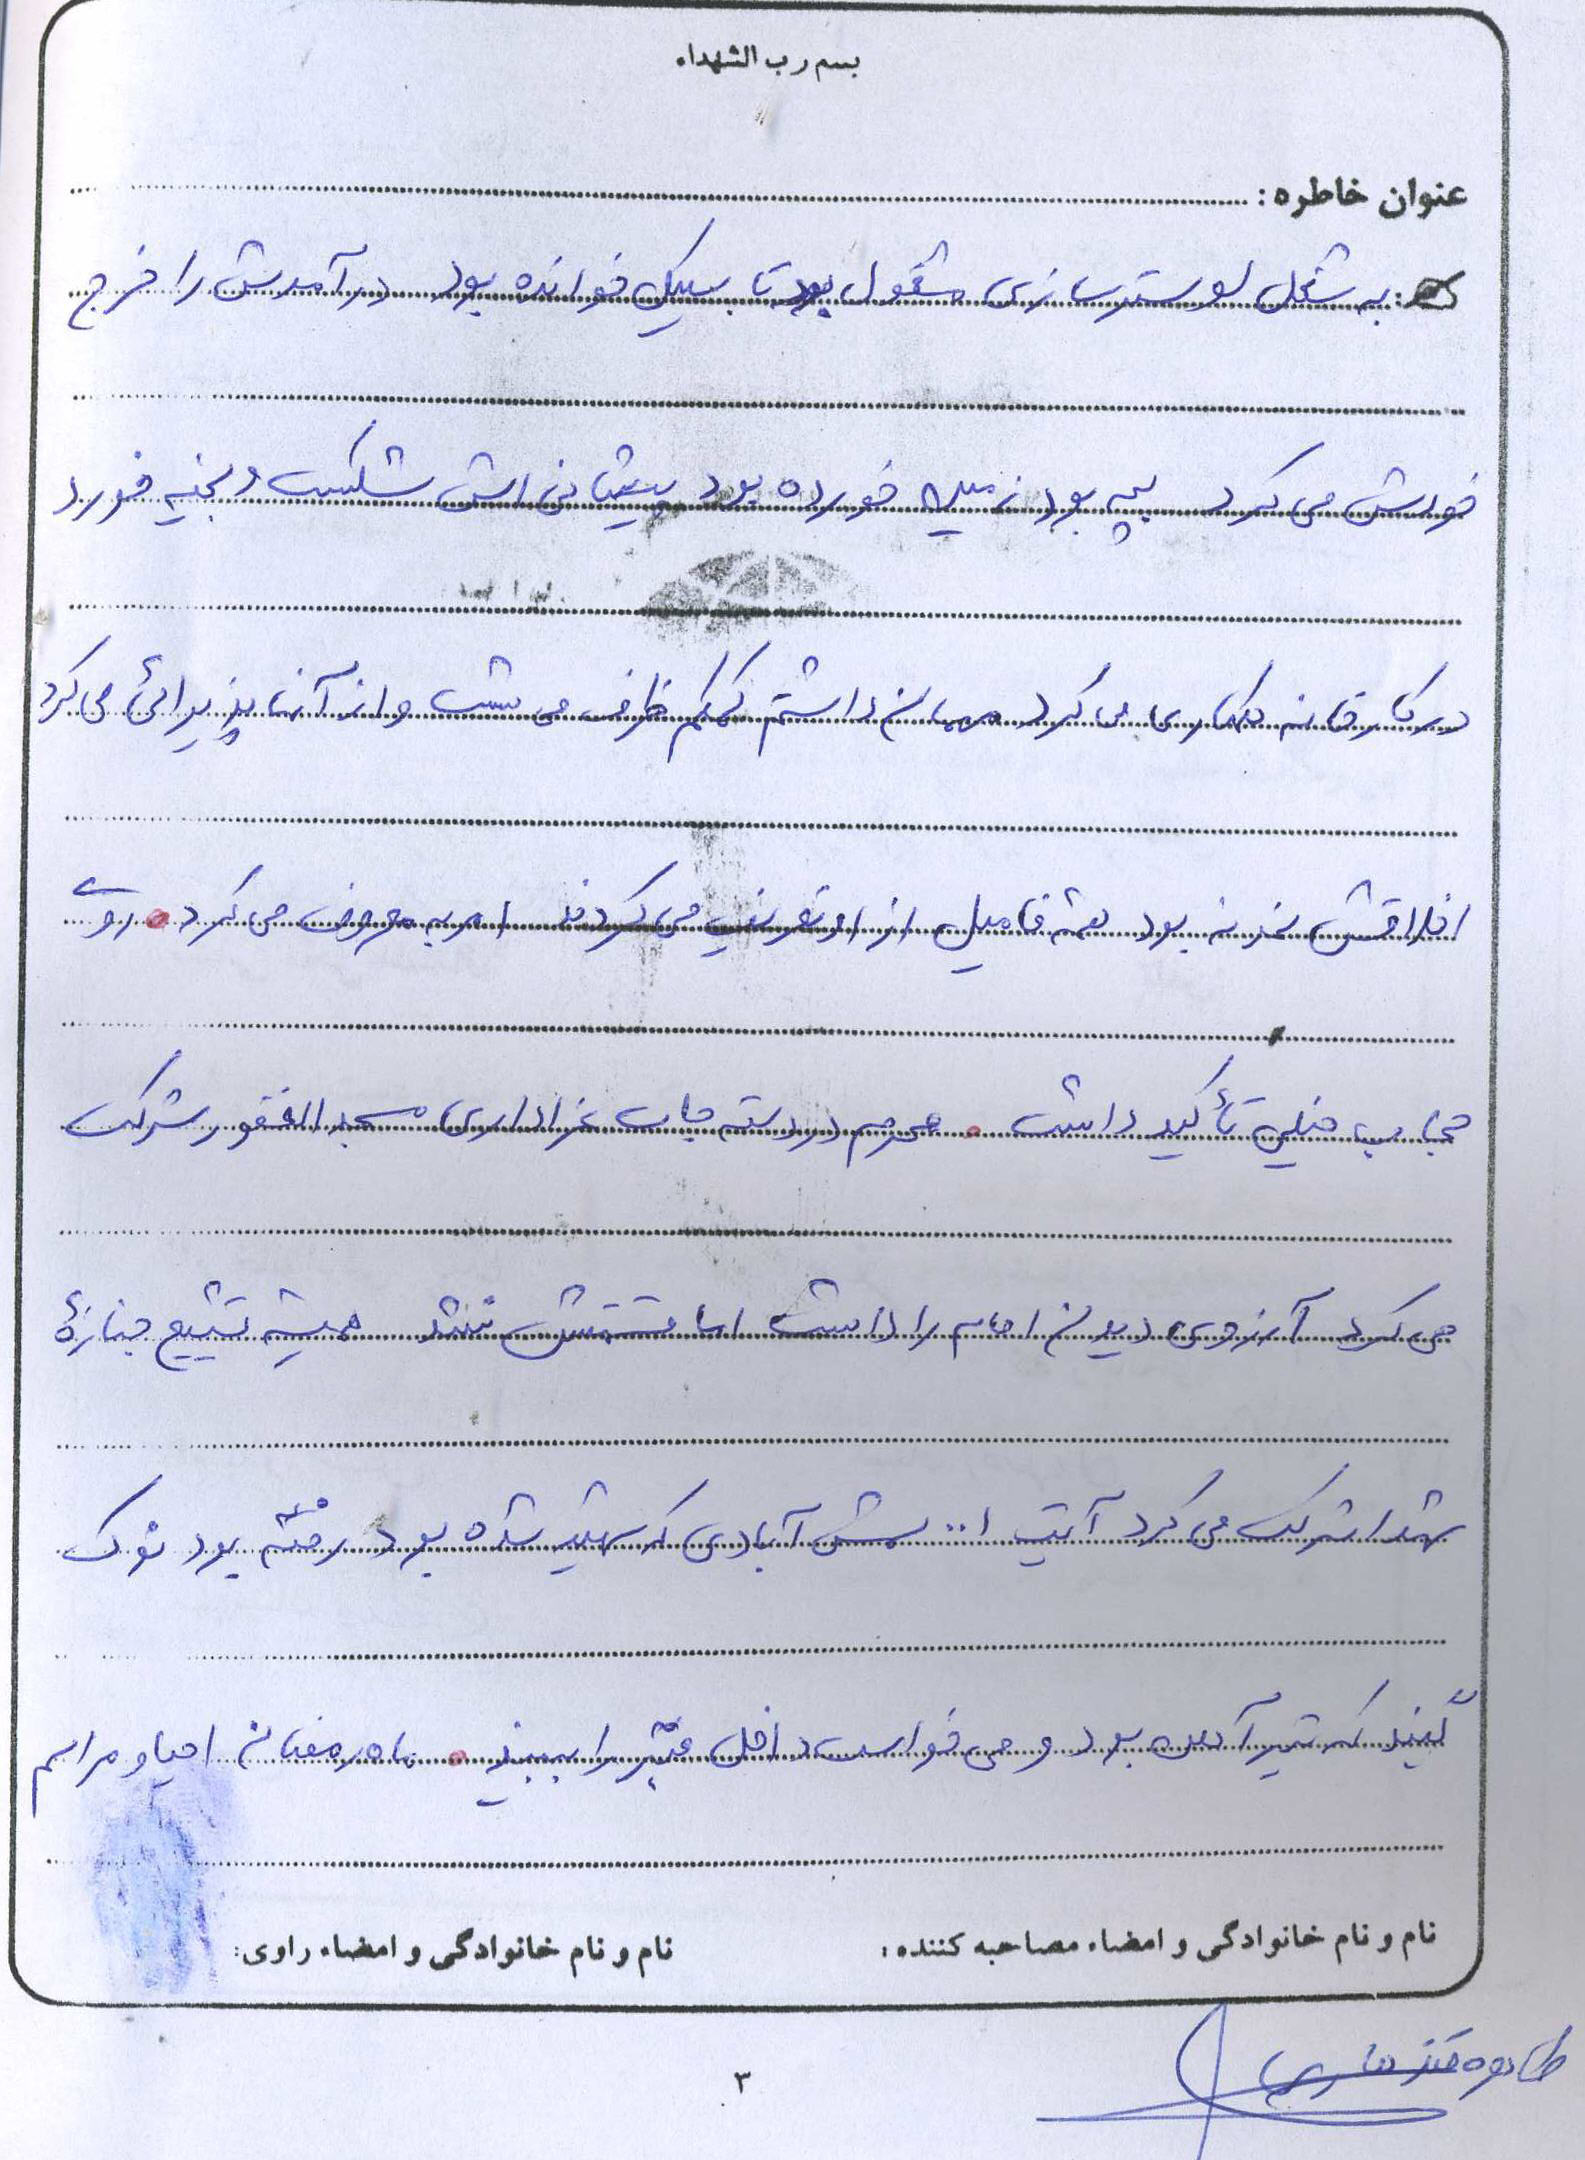 بسم رب الشهداء
عنوان خاطره :
به شغل لوسترسازی مشغول بود تا سیکل خوانده بود درآمدش را خرج
خودش می کرد بچه بود زمین خورده بود پیشانی اش شکست و بخیه خورد
در کارخانه همکاری می کرد مهمان داشتم کمکم ظرف می شست و از آنها پذیرائی می کرد
اخلاقش نمونه بود همه فامیل از او تعریف می کردند امر به معروف می کرد روی
حجاب خیلی تأکید داشت محرم در دسته جات عزاداری مسجد الغفور شرکت
می کرد آرزوی دیدن امام را داشت اما قسمتش نشد همیشه تشییع جنازۀ
شهدا شرکت می کرد آیت ا... شمس آبادی که شهید شده بود رفته بود نوک
گنبد که تیرآهن بود و می خواست داخل قبر را ببیند ماه رمضان احیا و مراسم
نام و نام خانوادگی و امضاء مصاحبه کننده :
نام و نام خانوادگی و امضاء راوی :
طاووه قندهاری
۳